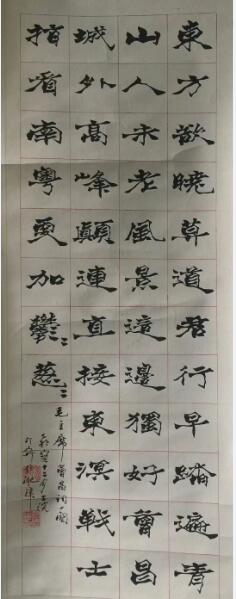 東方欲曉莫道君行早踏遍青
山人未老風景這邊獨好會昌
城外高峰顛連直接東溟戰士
指看南粤更加鬱〻蔥〻
毛主席會昌詞一闋